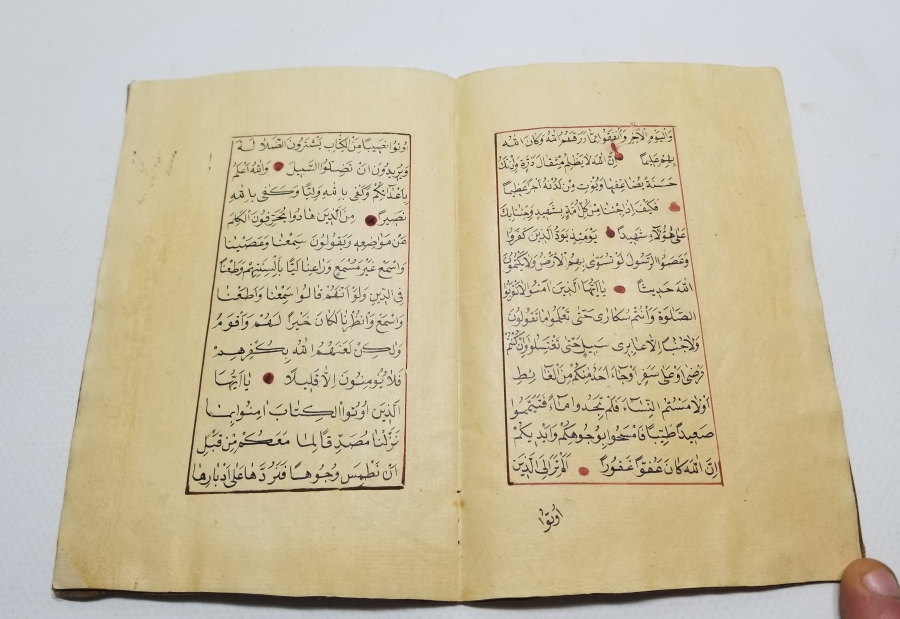 وَالْيَوْمِ الْآخِرِ وَأَنْفَقُوا مِمَّا رَزَقَهُمُ اللّٰهُ وَكَانَ اللّٰهُ
بِهِمْ عَلِيمًا اِنَّ اللّٰهَ لَا يَظْلِمُ مِثْقَالَ ذَرَّةٍ وَاِنْ تَكُ
حَسَنَةً يُضَاعِفْهَا وَيُؤْتِ مِنْ لَدُنْهُ اَجْرًا عَظِيمًا
فَكَيْفَ اِذَا جِئْنَا مِنْ كُلِّ اُمَّةٍ بِشَهِيدٍ وَجِئْنَا بِكَ
عَلٰى هٰؤُلَاءِ شَهِيدًا يَوْمَئِذٍ يَوَدُّ الَّذِينَ كَفَرُوا
وَعَصَوُا الرَّسُولَ لَوْ تُسَوّٰى بِهِمُ الْاَرْضُ وَلَا يَكْتُمُونَ
اللّٰهَ حَدِيثًا يَا اَيُّهَا الَّذِينَ اٰمَنُوا لَا تَقْرَبُوا
الصَّلٰوةَ وَاَنْتُمْ سُكَارٰى حَتّٰى تَعْلَمُوا مَا تَقُولُونَ
وَلَا جُنُبًا اِلَّا عَابِرِى سَبِيلٍ حَتّٰى تَغْتَسِلُوا وَاِنْ كُنْتُمْ
مَرْضٰى اَوْ عَلٰى سَفَرٍ اَوْ جَاءَ اَحَدٌ مِنْكُمْ مِنَ الْغَائِطِ
اَوْ لَامَسْتُمُ النِّسَاءَ فَلَمْ تَجِدُوا مَاءً فَتَيَمَّمُوا
صَعِيدًا طَيِّبًا فَامْسَحُوا بِوُجُوهِكُمْ وَاَيْدِيكُمْ
اِنَّ اللّٰهَ كَانَ عَفُوًّا غَفُورًا اَلَمْ تَرَ اِلَى الَّذِينَ
اُوتُوا
اُوتُوا نَصِيبًا مِنَ الْكِتَابِ يَشْتَرُونَ الضَّلَالَةَ
وَيُرِيدُونَ اَنْ تَضِلُّوا السَّبِيلَ وَاللّٰهُ اَعْلَمُ
بِاَعْدَائِكُمْ وَكَفٰى بِاللّٰهِ وَلِيًّا وَكَفٰى بِاللّٰهِ
نَصِيرًا مِنَ الَّذِينَ هَادُوا يُحَرِّفُونَ الْكَلِمَ
عَنْ مَوَاضِعِهِ وَيَقُولُونَ سَمِعْنَا وَعَصَيْنَا
وَاسْمَعْ غَيْرَ مُسْمَعٍ وَرَاعِنَا لَيًّا بِاَلْسِنَتِهِمْ وَطَعْنًا
فِى الدِّينِ وَلَوْ اَنَّهُمْ قَالُوا سَمِعْنَا وَاَطَعْنَا
وَاسْمَعْ وَانْظُرْنَا لَكَانَ خَيْرًا لَهُمْ وَاَقْوَمَ
وَلٰكِنْ لَعَنَهُمُ اللّٰهُ بِكُفْرِهِمْ
فَلَا يُؤْمِنُونَ اِلَّا قَلِيلًا يَا اَيُّهَا
الَّذِينَ اُوتُوا الْكِتَابَ اٰمِنُوا بِمَا
نَزَّلْنَا مُصَدِّقًا لِمَا مَعَكُمْ مِنْ قَبْلِ
اَنْ نَطْمِسَ وُجُوهًا فَنَرُدَّهَا عَلٰى اَدْبَارِهَا